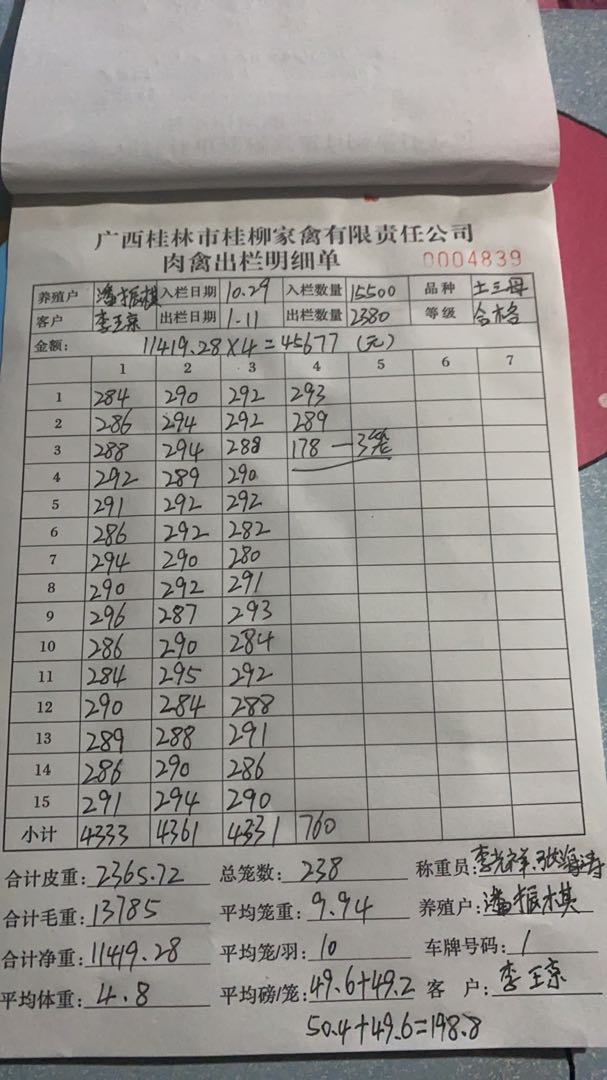 广西桂林市桂柳家禽有限责任公司
肉禽出栏明细单 0004839
养殖户 潘振棋 入栏日期 10.29 入栏数量 15500 品种 土三母
客户 李王京 出栏日期 1.11 出栏数量 2380 等级 合格
金额: 11419.28×4=45677 (元)
1 2 3 4 5 6 7
1 284 290 292 293
2 286 294 292 289
3 288 294 288 178 — 3笼
4 292 289 290
5 291 292 292
6 286 292 282
7 294 290 280
8 290 292 291
9 296 287 293
10 286 290 284
11 284 295 292
12 290 284 288
13 289 288 291
14 286 290 286
15 291 294 290
小计 4333 4361 4331 760
合计皮重: 2365.72 总笼数: 238 称重员: 李光祥.张海涛
合计毛重: 13785 平均笼重: 9.94 养殖户: 潘振棋
合计净重: 11419.28 平均笼/羽: 10 车牌号码: 1
平均体重: 4.8 平均磅/笼: 49.6+49.2 客 户: 李王京
50.4+49.6=198.8